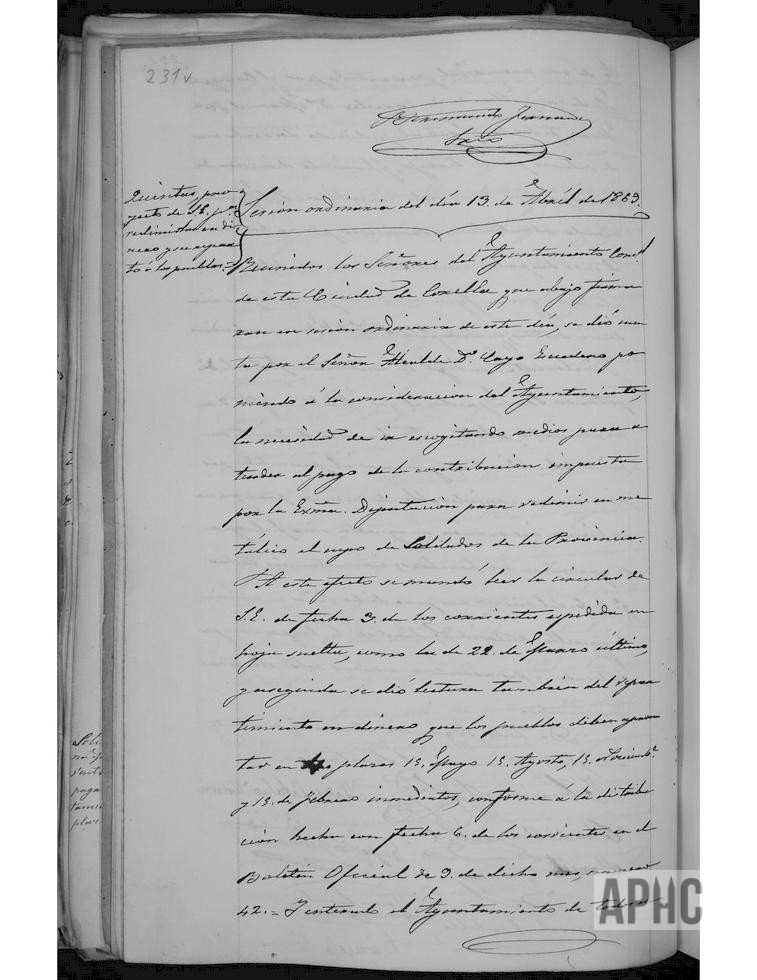 231v
Raimundo
Quintas, pro-
yecto de S.E. pª
redimirlas en di-
nero y su repar-
to á los pueblos.=
Sesion ordinaria del dia 13. de Abril de 1869.
Reunidos los Señores del Ayuntamiento Consl
de esta Ciudad de Corella, que abajo firma-
ran en sesion ordinaria de este dia, se dió cuen-
ta por el Señor Alcalde Dn. Cayo Escudero po-
niendo á la consideracion del Ayuntamiento,
la necesidad de ir escogitando medios para a-
tender al pago de la contribucion impuesta
por la Exma. Diputacion para redimir en me-
tálico el cupo de Soldados de la Provincia.
A este efecto se mandó leer la circular de
S.E. de fecha 3. de los corrientes espedida en
hoja suelta, como la de 22. de Marzo último,
y enseguida se dió lectura tambien del repar-
timiento en dinero que los pueblos deben apron-
tar en plazos 15. Mayo 15. Agosto, 15. Noviembe
y 15. de Febrero inmediatos, conforme á la distribu-
cion hecha con fecha 6. de los corrientes en el
Boletin Oficial de 9. de dicho mes, numero
42.= Y enterado el Ayuntamiento de todo
APHC